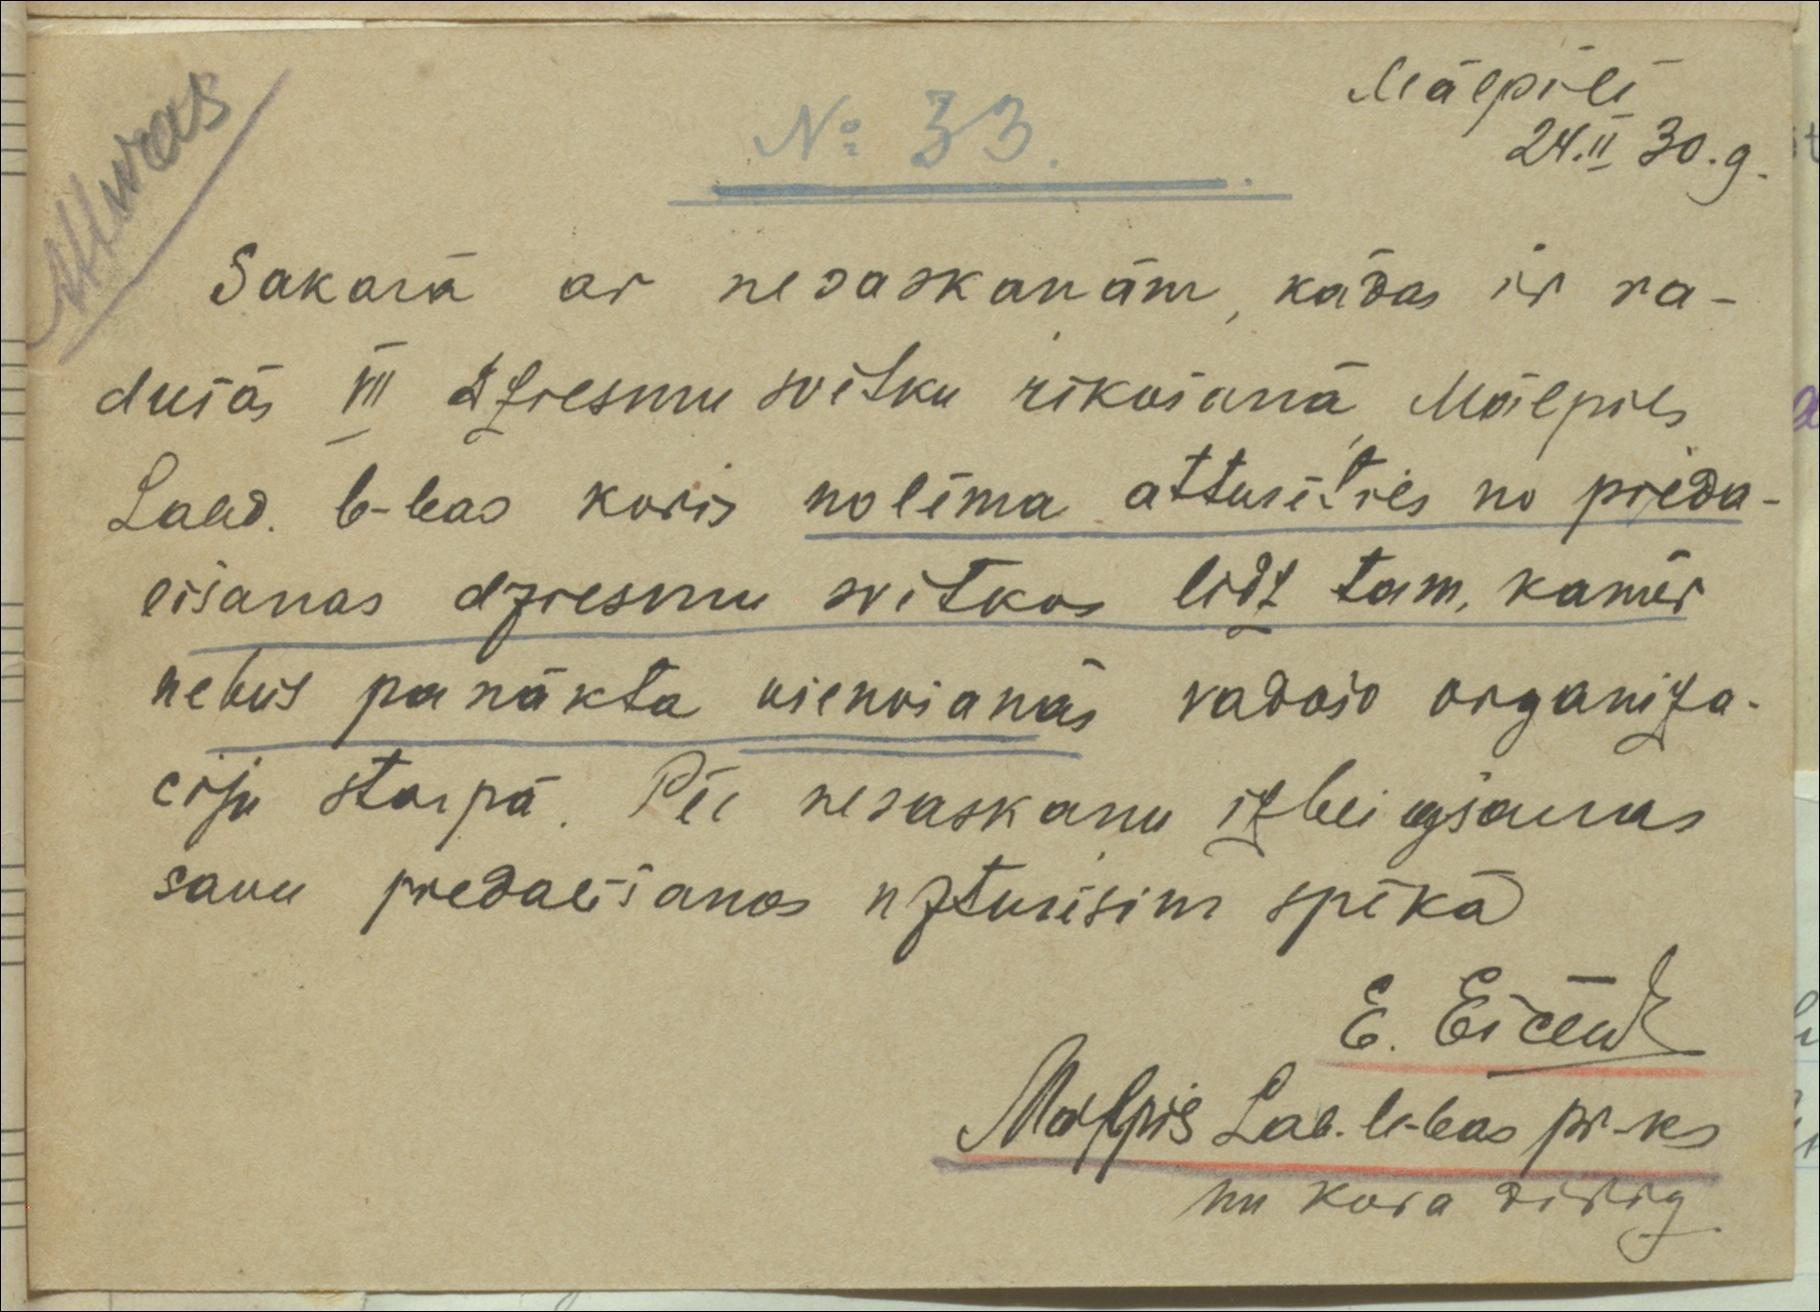 Atturas
Nº 33.
Mālpilī
24.II 30.g.
Sakarā ar nesaskanām, kādas ir ra-
dušās VII Dziesmu svētku rīkošanā, Mālpils
Labd. b-bas koris nolēma atturēties no pieda-
līšanas dziesmu svētkos līdz tam, kamēr
nebūs panākta vienošanās vadošo organiza-
ciju starpā. Pēc nesaskaņu izbeigšanas
savu piedalīšanos uzturēsim spēkā
E.
Mālpils Lab. b-bas pr-ks
un kora dirig.